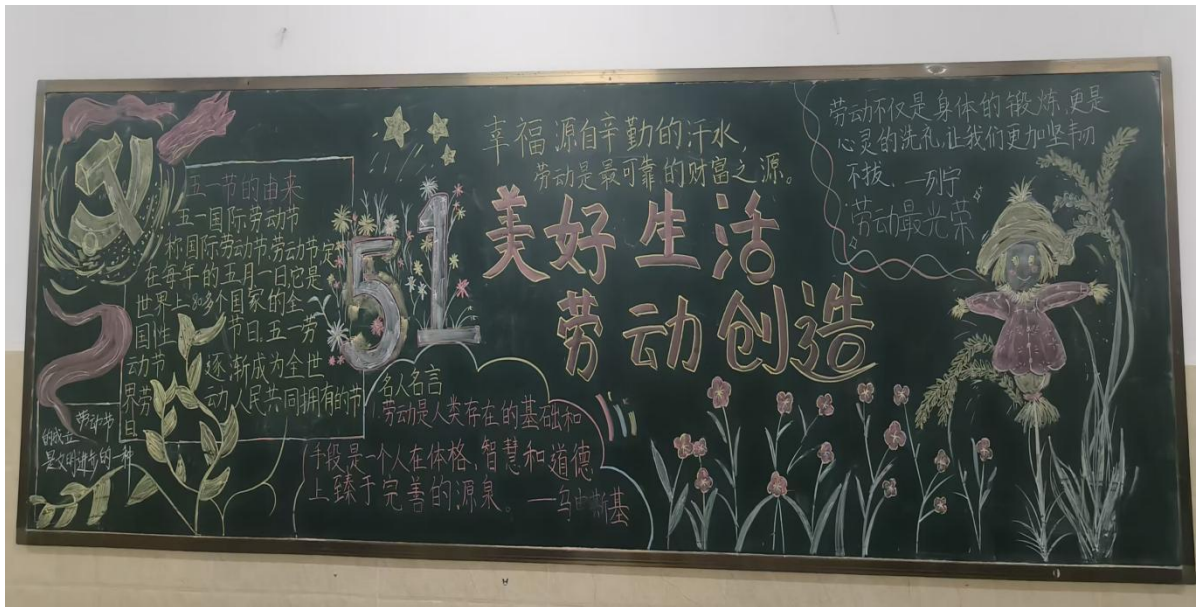 五一节的由来
五一国际劳动节
称国际劳动节、劳动节定
在每年的五月一日它是
世界上80多个国家的全
国性 节日,五一劳
动节 逐渐成为全世
界劳 动人民共同拥有的节
日
劳动节
的成立
是文明进步的一种
51
幸福源自辛勤的汗水,
劳动是最可靠的财富之源。
美好生活
劳动创造
名人名言
劳动是人类存在的基础和
手段,是一个人在体格、智慧和道德
上臻于完善的源泉。
——乌申斯基
劳动不仅是身体的锻炼,更是
心灵的洗礼,让我们更加坚韧
不拔.—列宁
劳动最光荣